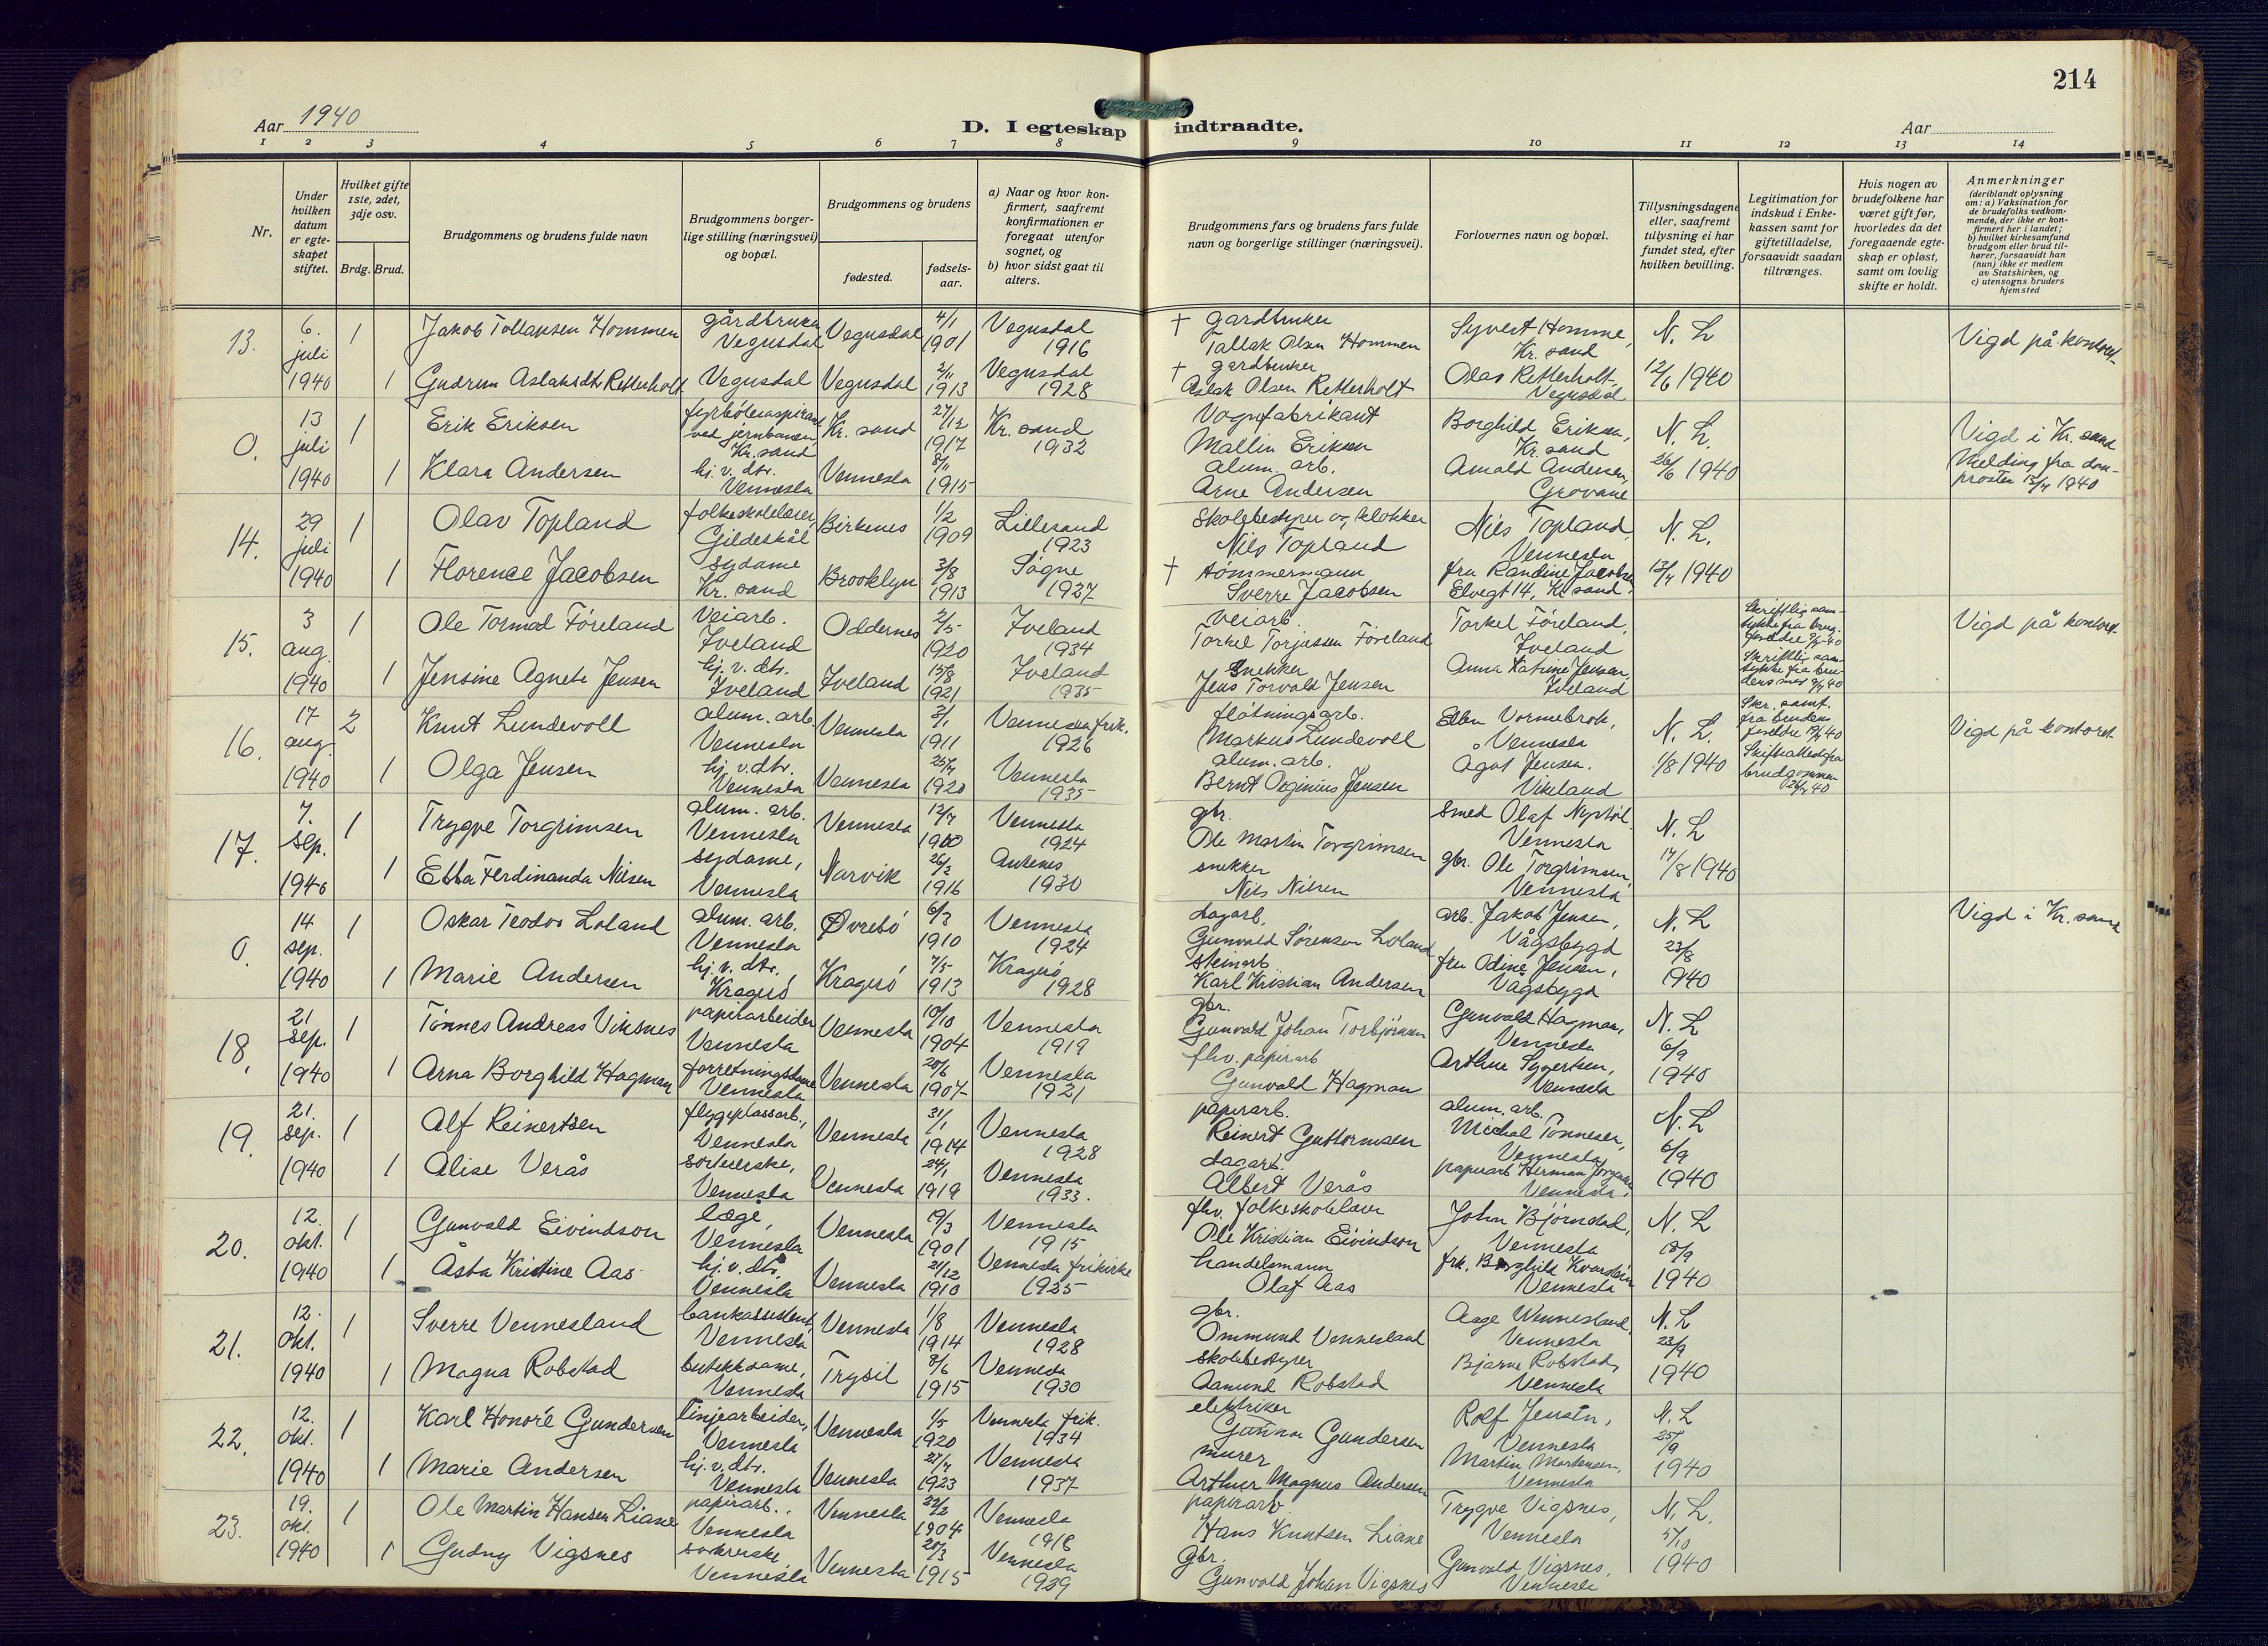 214
Aar 1940
D. I egteskap indtraadte.
Aar
1 2 3 4 5 6 7 8 9 10 11 12 13 14
Nr.
Under hvilken datum er egteskapet stiftet.
Hvilket gifte 1ste, 2det, 3dje osv.
Brdg. Brud.
Brudgommens og brudens fulde navn
Brudgommens borgerlige stilling (næringsvei) og bopæl.
Brudgommens og brudens
fødested.
fødselsaar.
a) Naar og hvor konfirmert, saafremt konfirmationen er foregaat utenfor sognet, og
b) hvor sidst gaat til alters.
Brudgommens fars og brudens fars fulde navn og borgerlige stillinger (næringsvei).
Forlovernes navn og bopæl.
Tillysningsdagene eller, saafremt tillysning ei har fundet sted, efter hvilken bevilling.
Legitimation for indskud i Enkekassen samt for giftetilladelse, forsaavidt saadan tiltrænges.
Hvis nogen av brudefolkene har været gift før, hvorledes da det foregaaende egteskap er opløst, samt om lovlig skifte er holdt.
Anmerkninger
(deriblandt oplysning om: a) Vaksination for de brudefolks vedkommende, der ikke er konfirmert her i landet; b) hvilket kirkesamfund brudgom eller brud tilhører, forsaavidt han (hun) ikke er medlem av Statskirken, og c) utensogns bruders hjemsted
13. 6. juli 1940
1 Jakob Tollaksen Hommen gårdbruker Vegusdal Vegusdal 4/1 1901 Vegusdal 1916 † gardbruker Tallak Olsen Hommen Syvert Homme, Kr. sand N. L. Vigd på kontoret
1 Gudrun Aslaksdtr Retterholt Vegusdal Vegusdal 2/11 1913 Vegusdal 1928 † gardbruker Aslak Olsen Retterholt Olav Retterholt Vegusdal 12/6 1940
0. 13 juli 1940
1 Erik Eriksen fyrbøteraspirant ved jernbanen Kr. sand Kr. sand 27/12 1917 Kr. sand 1932 Vognfabrikant Mallin Eriksen Borghild Eriksen, Kr. sand N. L. Vigd i Kr. sand
1 Klara Andersen hj. v. dtr. Vennesla Vennesla 8/11 1915 alum. arb. Arne Andersen Arnold Andersen, Grovane 26/6 1940 Melding fra domprosten 15/7 1940
14. 29 juli 1940
1 Olav Topland folkeskolelærer, Gildeskål Birkenes 1/2 1909 Lillesand 1923 Skolebestyrer og klokker Nils Topland Nils Topland, Vennesla N. L.
1 Florence Jacobsen sydame Kr. sand Brooklyn 3/8 1913 Søgne 1927 † tømmermann Sverre Jacobsen fru Randine Jacobsen Elvegt 14, Kr. sand 13/7 1940
15. 3 aug. 1940
1 Ole Tormod Føreland veiarb. Iveland Oddernes 2/5 1920 Iveland 1934 veiarb. Torkel Torjussen Føreland Torkel Føreland, Iveland Skriftlig samtykke fra brudg. foreldre 2/7-40 Vigd på kontoret
1 Jensine Agnete Jensen hj. v. dtr. Iveland Iveland 15/8 1921 Iveland 1935 Snekker Jens Torvald Jensen Anna Katrine Jensen, Iveland Skriftlig samtykke fra
16. 17 aug. 1940
2 Knut Lundevoll alum. arb. Vennesla Vennesla 2/1 1911 Vennesla frik. 1926 fløtningsarb. Markus Lundevoll Ellen Vormebrok, Vennesla N. L. Skr. samt. fra brudens foreldre Vigd på kontoret
1 Olga Jensen hj. v. dtr. Vennesla Vennesla 25/7 1920 Vennesla 1935 alum. arb. Bernt Jensen Ågot Jensen. Vikeland 1/8 1940 Skifteattest fra brudgommen 26/7 40
17. 7. sep. 1940
1 Trygve Torgrimsen alum. arb. Vennesla Vennesla 12/7 1910 Vennesla 1924 gbr. Ole Martin Torgrimsen smed Olaf Vennesla N. L
1 Ebba Ferdinanda Nilsen sydame, Vennesla Narvik 26/2 1916 Ankenes 1930 snekker Nils Nilsen gbr. Ole Torgrimsen, Vennesla 17/8 1940
0. 14 sep. 1940
1 Oskar Teodor Loland alum. arb. Vennesla Øvrebø 6/3 1910 Vennesla 1924 dagarb. Gunvald Sørensen Loland arb. Jakob Jensen, Vågsbygd N. L 23/8 1940 Vigd i Kr. sand
1 Marie Andersen hj. v. dtr., Kragerø Kragerø 7/5 1913 Kragerø 1928 steinarb Karl Kristian Andersen fru Odine Jensen, Vågsbygd
18. 21 sep. 1940
1 Tønnes Andreas Viksnes papirarbeider Vennesla Vennesla 10/10 1904 Vennesla 1919 gbr. Gunvald Johan Torbjørnsen Gunvald Hagman, Vennesla N. L 6/9 1940
1 Arna Borghild Hagman forretningsdame Vennesla Vennesla 20/6 1907 Vennesla 1921 fhv. papirarb Gunvald Hagman Arthur Syvertsen, Vennesla
19. 21. sep. 1940
1 Alf Reinertsen flygeplassarb., Vennesla Vennesla 31/1 1914 Vennesla 1928 papirarb. Reinert Guttormsen alum. arb. Michal Tønnesen, Vennesla N. L 6/9 1940
1 Alise Verås sorterske, Vennesla Vennesla 24/1 1919 Vennesla 1933. dagarb. Albert Verås papirarb Herman Vennesla.
20. 12. okt. 1940
1 Gunvald Eivindson læge, Vennesla Vennesla 19/3 1901 Vennesla 1915 fhv. folkeskolelærer Ole Kristian Eivindson John Bjørndal, Vennesla N. L 18/9 1940
1 Åsta Kristine Aas hj. v. dtr. Vennesla Vennesla 21/12 1910 Vennesla frikirke 1925 handelsmann Olaf Aas frk. Borghild Kvarstein Vennesla
21. 12. okt. 1940
1 Sverre Vennesland bankassistent, Vennesla Vennesla 1/8 1914 Vennesla 1928 gbr. Ommund Vennesland Aage Vennesland, Vennesla N. L 23/9 1940
1 Magna Robstad butikkdame, Vennesla Trysil 8/6 1915 Vennesla 1930 skolebestyrer Aamund Robstad Bjarne Robstad, Vennesla
22. 12. okt. 1940
1 Karl Honoré Gundersen linjearbeider, Vennesla Vennesla 1/5 1920 Vennesla frik. 1934 elektriker Gunnar Gundersen Rolf Jensen, Vennesla N. L 25/9 1940
1 Marie Andersen hj. v. dtr. Vennesla Vennesla 27/7 1923 Vennesla 1937 murer Arthur Magnus Andersen Martin Mortensen, Vennesla
23. 19. okt. 1940
1 Ole Martin Hansen Liane papirarb., Vennesla Vennesla 22/2 1904 Vennesla 1918 papirarb. Hans Knutsen Liane Trygve Vigsnes, Vennesla N. L. 5/10 1940
1 Gudny Vigsnes Vennesla Vennesla 20/3 1915 Vennesla 1929 gbr. Gunvald Johan Vigsnes Gunvald Vigsnes, Vennesla